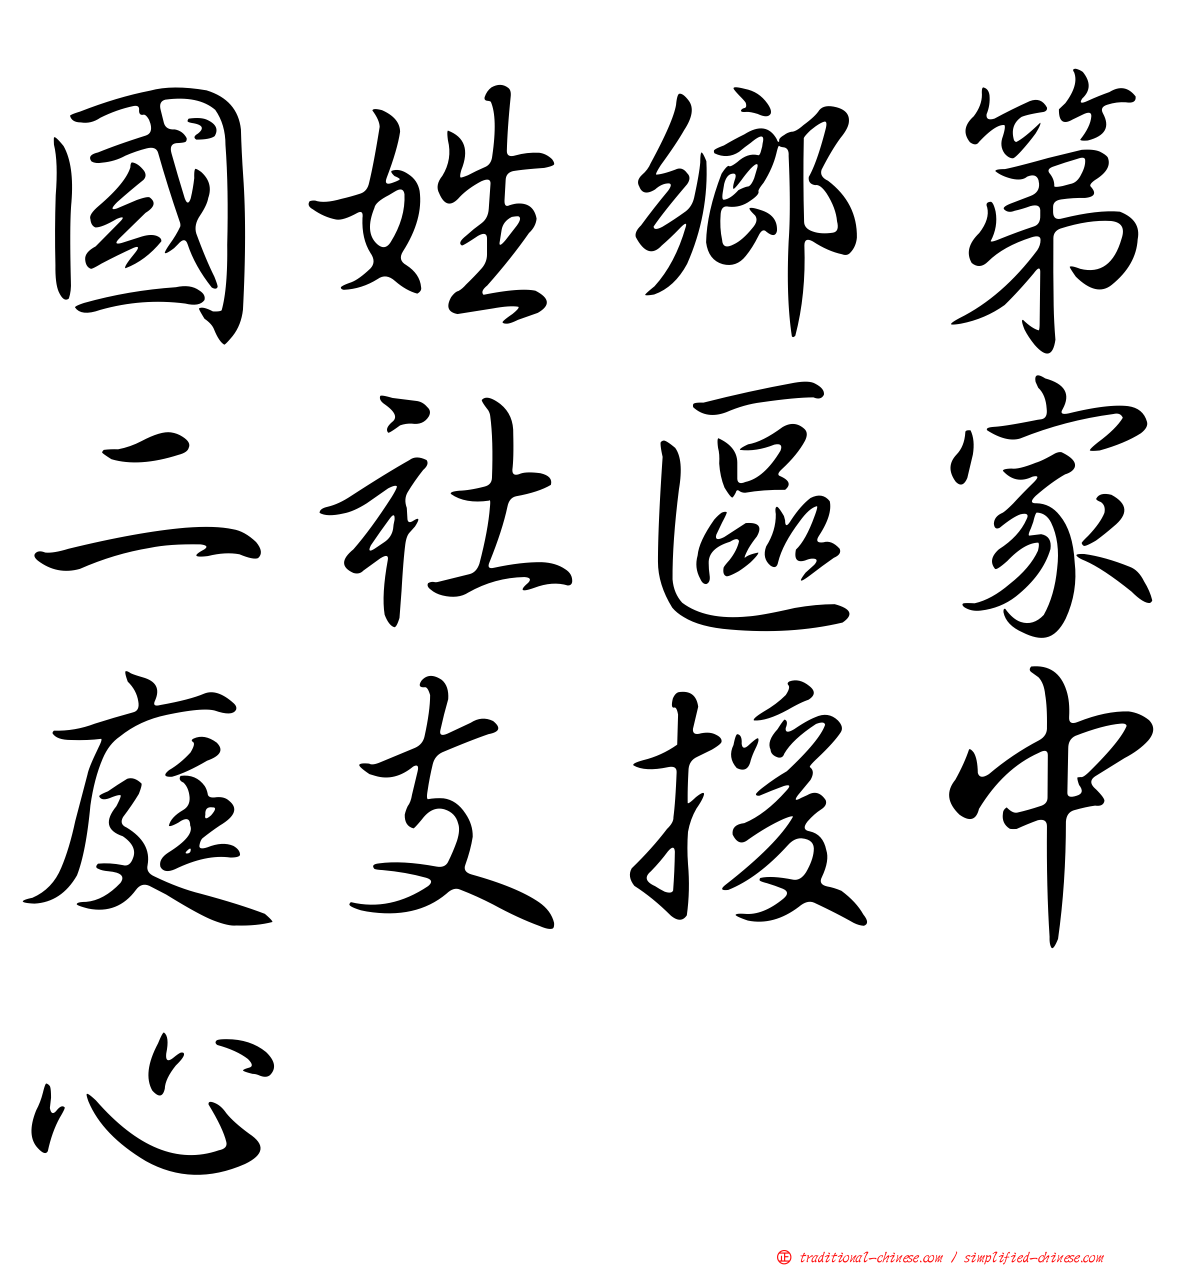 國姓鄉第
二社區家
庭支援中
心
㊣ traditional-chinese.com / simplified-chinese.com